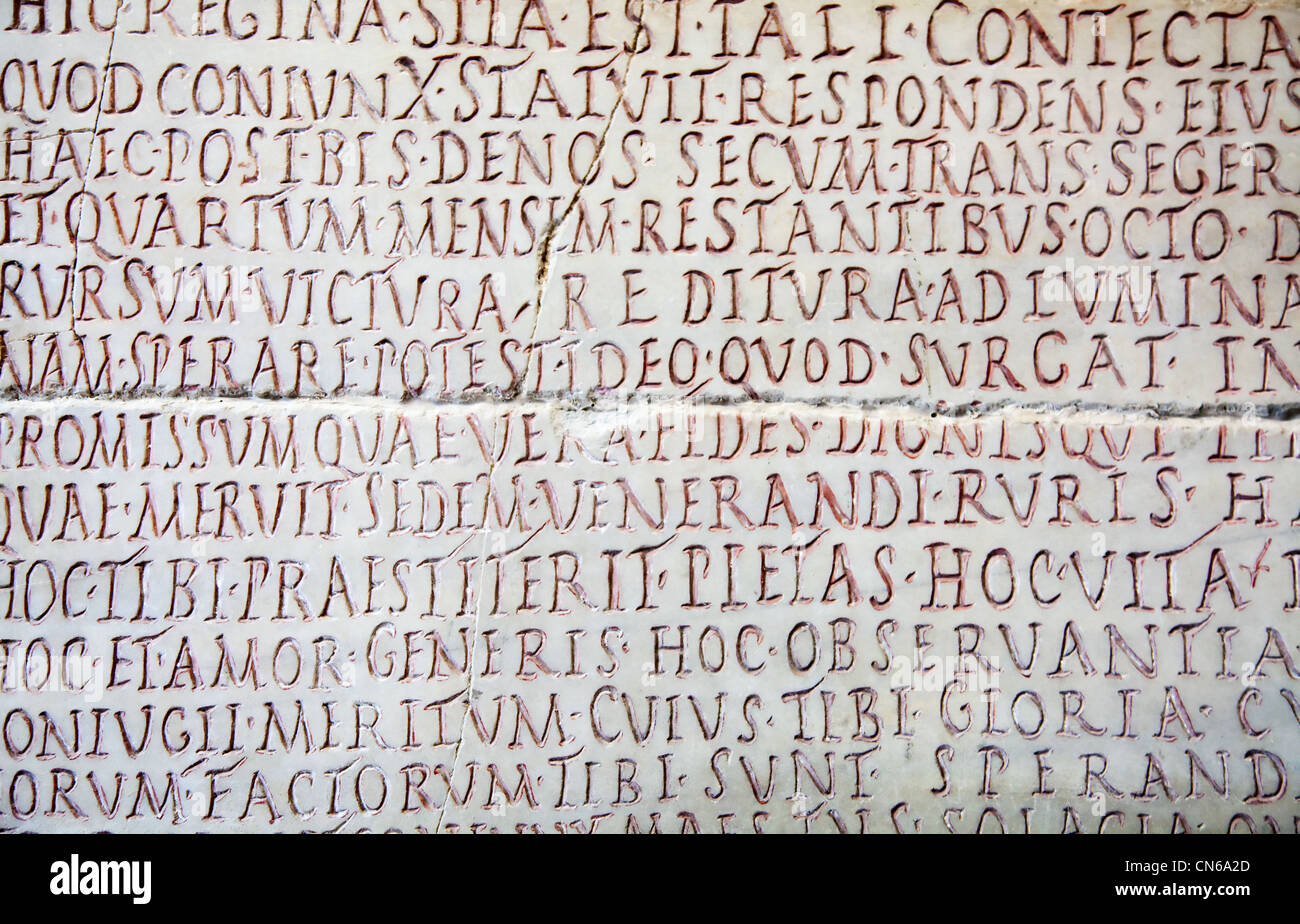 HIC REGINA·SITA·EST·TALI·CONTECTA
QUOD CONIUNX·STATVIT·RESPONDENS·EIUS
HAEC·POST·BIS·DENOS SECVM·TRANS SEGER
ET·QUARTUM·MENSEM·RESTANTIBUS·OCTO·D
RURSUM·VICTURA·REDITURA·AD LUMINA
NAM·SPERARE·POTEST·IDEO·QUOD·SURGAT·IN
PROMISSUM QUAE VERA·FIDES·DIGNIS QUI
QUAE·MERUIT·SEDEM·VENERANDI·RURIS·H
HOC·TIBI·PRAESTITERIT·PIETAS·HOC·VITA
HOC·ET·AMOR·GENERIS·HOC·OBSERVANTIA
CONIUGII·MERITUM·CUIUS·TIBI·GLORIA·CV
HORUM·FACTORUM·TIBI·SUNT·SPERAND
SOLACIA
alamy
Image ID: CN6A2D
www.alamy.com